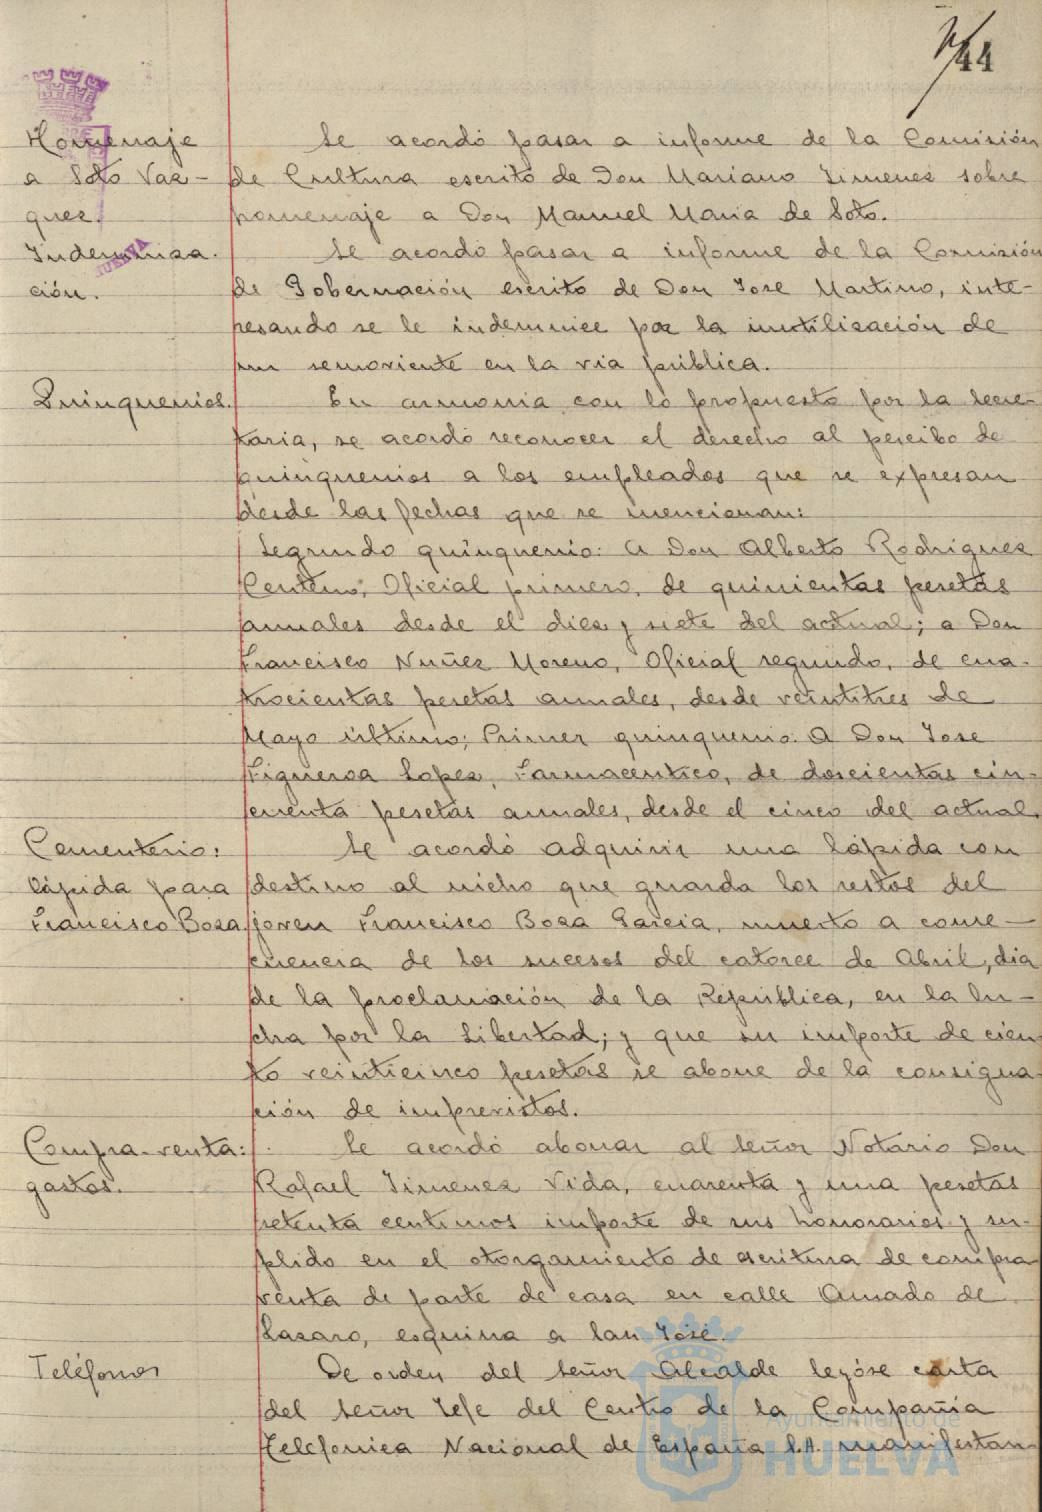 44
Homenaje
a Soto Vaz-
quez.
Se acordó pasar a informe de la Comisión
de Cultura escrito de Don Mariano Jimenez sobre
homenaje a Don Manuel Maria de Soto.
Indemniza.
ción.
Se acordó pasar a informe de la Comisión
de Gobernación escrito de Don Jose Martino, inte-
resando se le indemnice por la inutilización de
un semoviente en la via pública.
Quinquenios.
En armonia con lo propuesto por la Secre-
taria, se acordó reconocer el derecho al percibo de
quinquenios a los empleados que se expresan
desde las fechas que se mencionan:
Segundo quinquenio: A Don Alberto Rodriguez
Centeno, Oficial primero, de quinientas pesetas
anuales desde el diez y siete del actual; a Don
Francisco Nuñez Moreno, Oficial segundo, de cua-
trocientas pesetas anuales, desde veintitres de
Mayo último; Primer quinquenio: A Don Jose
Figueroa Lopez, Farmaceutico, de doscientas cin-
cuenta pesetas anuales, desde el cinco del actual.
Cementerio:
lápida para
Francisco Boza.
Se acordó adquirir una lápida con
destino al nicho que guarda los restos del
joven Francisco Boza Garcia, muerto a conse-
cuencia de los sucesos del catorce de Abril, dia
de la proclamación de la República, en la lu-
cha por la libertad; y que su importe de cien-
to veinticinco pesetas se abone de la consigna-
ción de imprevistos.
Compra-venta:
gastos.
Se acordó abonar al Señor Notario Don
Rafael Jimenez Vida, cuarenta y una pesetas
setenta centimos importe de sus honorarios y su-
plido en el otorgamiento de escritura de compra
venta de parte de casa en calle Amado de
Lazaro, esquina a San José.
Teléfonos
De orden del Señor Alcalde leyóse carta
del Señor Jefe del Centro de la Compañia
Telefonica Nacional de España S.A. manifestan-
HUELVA
Ayuntamiento de
HUELVA